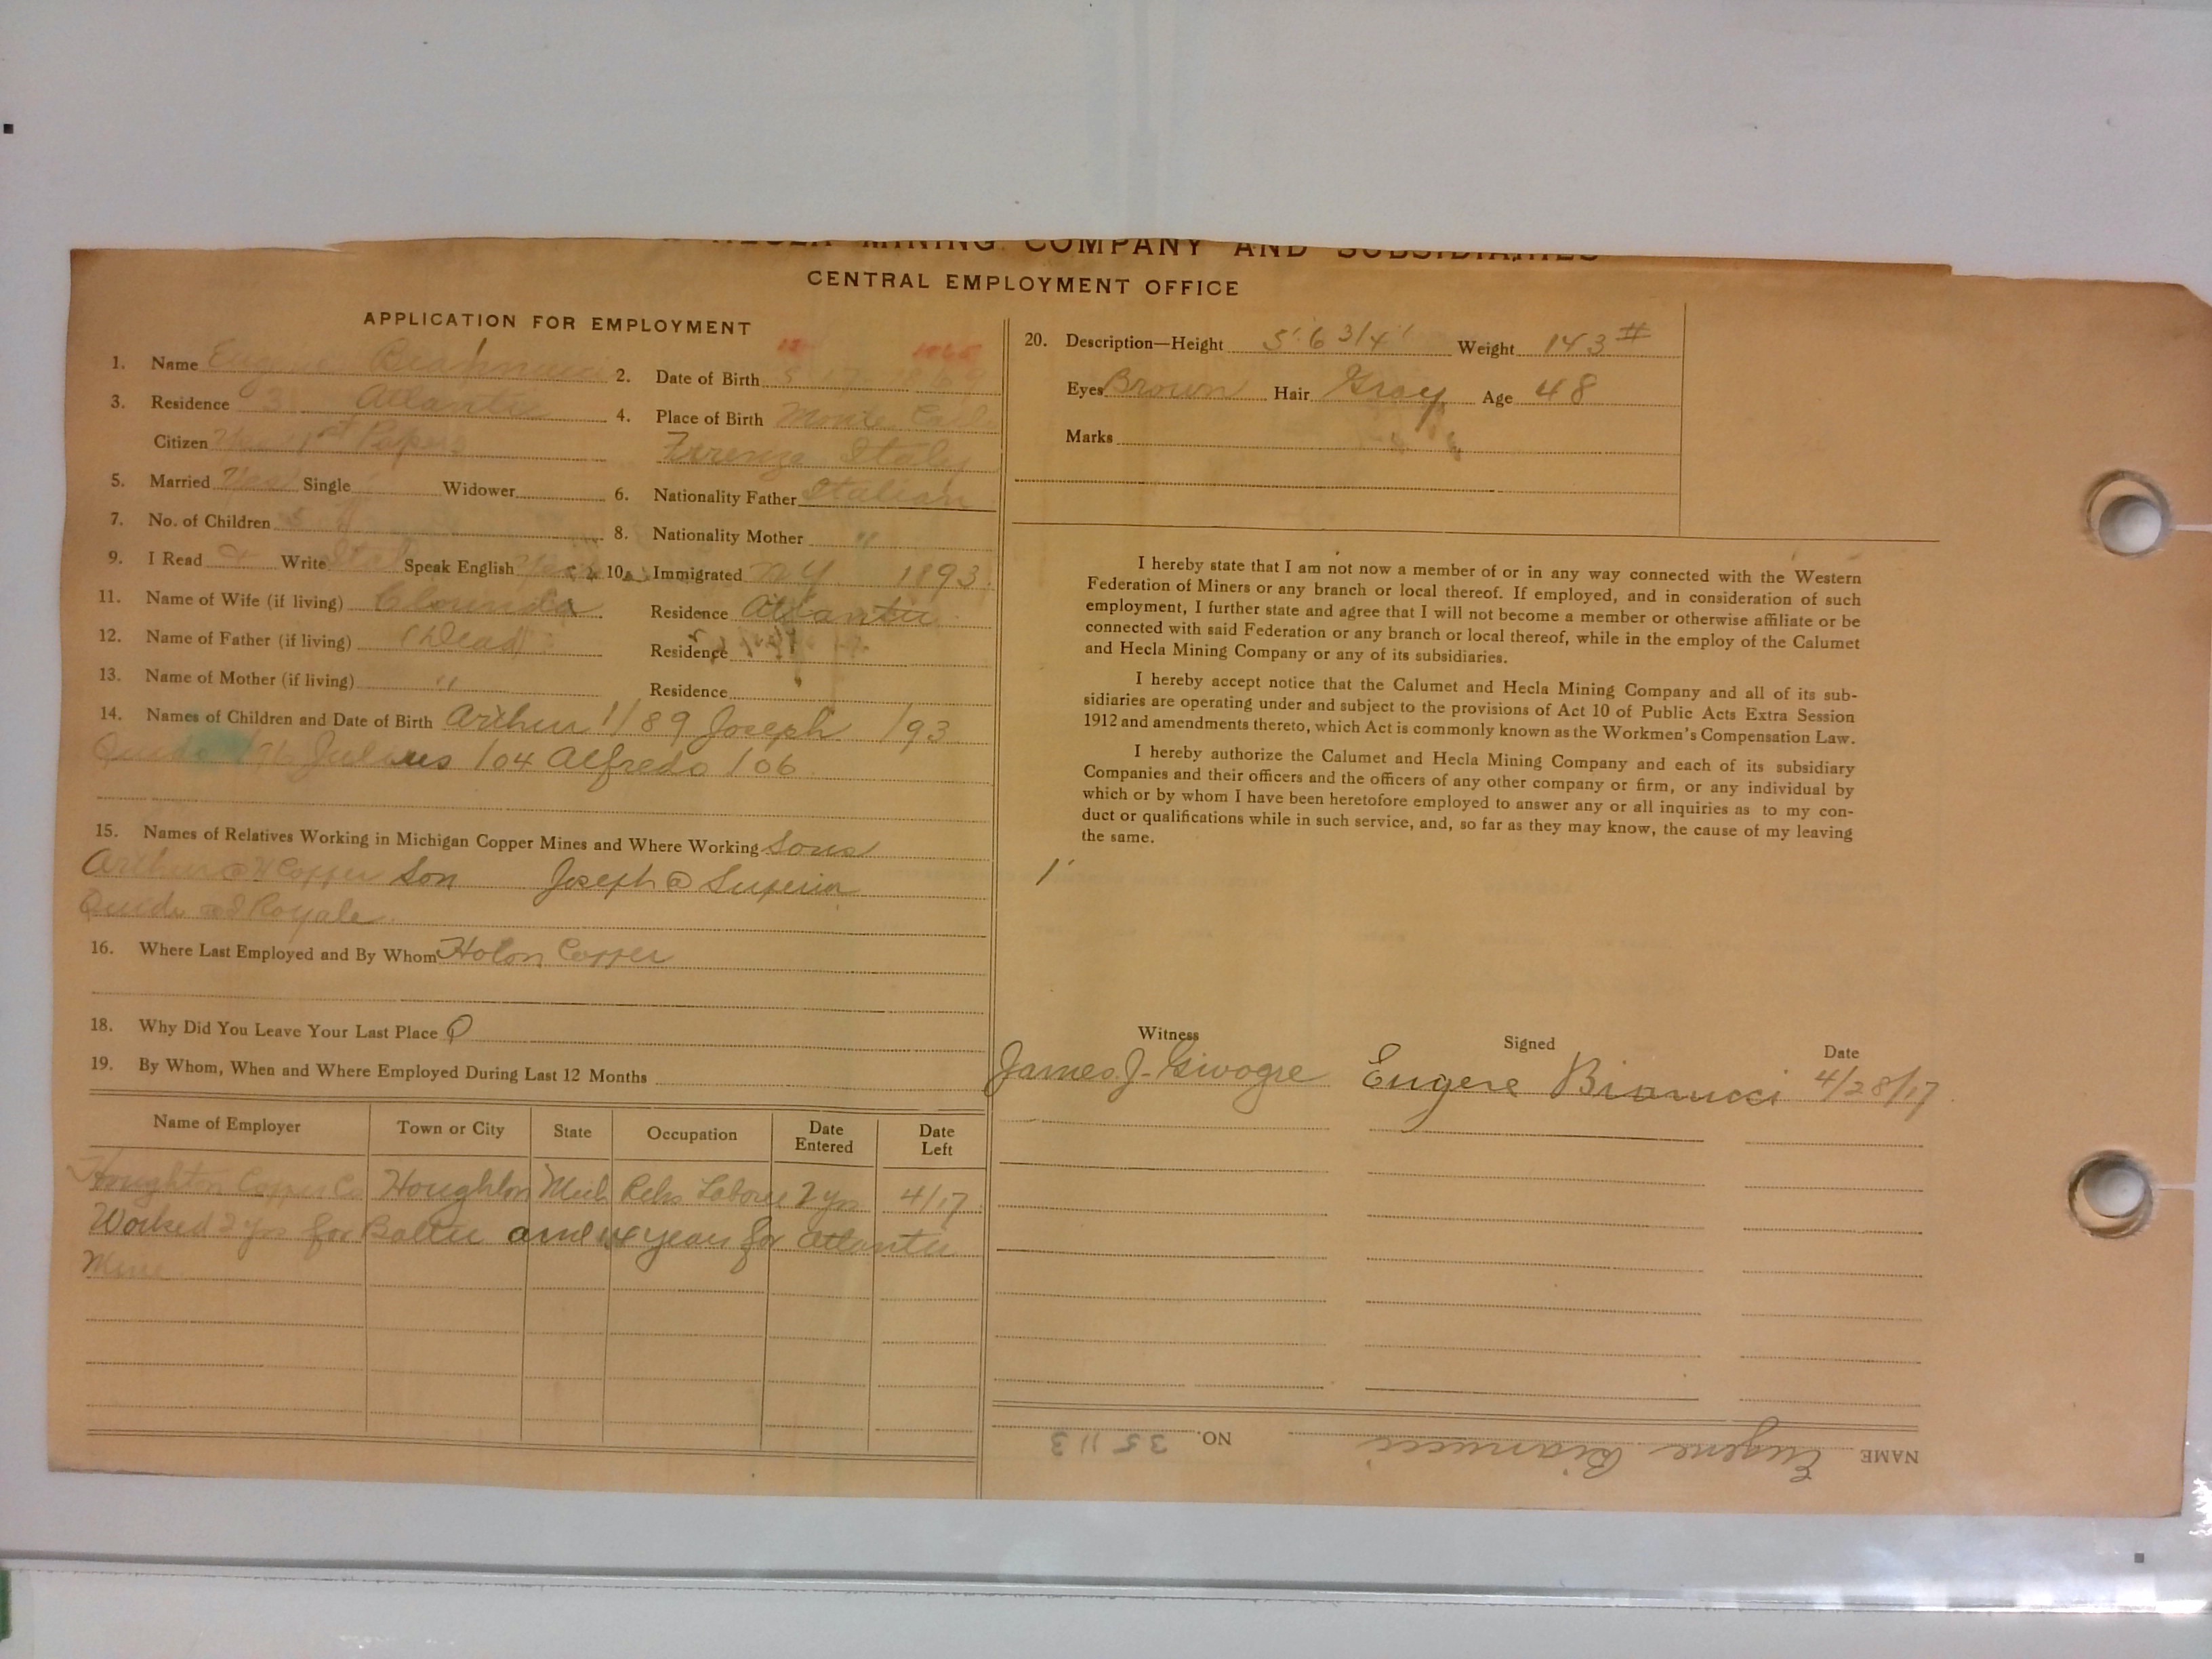 MINING COMPANY AND SUBSIDIARIES
CENTRAL EMPLOYMENT OFFICE
APPLICATION FOR EMPLOYMENT
1. Name Eugene
2. Date of Birth
3. Residence 31 Atlantic
4. Place of Birth Monte
Citizen 1st Papers
Firenze Italy
5. Married Yes Single Widower
6. Nationality Father Italian
7. No. of Children 5
8. Nationality Mother "
9. I Read & Write Ital Speak English Yes
10. Immigrated N Y 1893
11. Name of Wife (if living) Clorinda Residence Atlantic
12. Name of Father (if living) (Dead) Residence
13. Name of Mother (if living) " Residence
14. Names of Children and Date of Birth Arthur 1/89 Joseph /93
Quido Julius /04 Alfredo /06
15. Names of Relatives Working in Michigan Copper Mines and Where Working Sons
Arthur @ H Copper Son Joseph @ Superior
Quido Royale
16. Where Last Employed and By Whom Hoton Copper
18. Why Did You Leave Your Last Place Q
19. By Whom, When and Where Employed During Last 12 Months
Name of Employer Town or City State Occupation Date Entered Date Left
Houghton Copper Co Houghton Mich Laborer 2 yrs 4/17
Worked 2 yrs for Baltic and 14 years for Atlantic
Mine
20. Description—Height 5' 6 3/4' Weight 143 #
Eyes Brown Hair Gray Age 48
Marks
I hereby state that I am not now a member of or in any way connected with the Western
Federation of Miners or any branch or local thereof. If employed, and in consideration of such
employment, I further state and agree that I will not become a member or otherwise affiliate or be
connected with said Federation or any branch or local thereof, while in the employ of the Calumet
and Hecla Mining Company or any of its subsidiaries.
I hereby accept notice that the Calumet and Hecla Mining Company and all of its sub-
sidiaries are operating under and subject to the provisions of Act 10 of Public Acts Extra Session
1912 and amendments thereto, which Act is commonly known as the Workmen's Compensation Law.
I hereby authorize the Calumet and Hecla Mining Company and each of its subsidiary
Companies and their officers and the officers of any other company or firm, or any individual by
which or by whom I have been heretofore employed to answer any or all inquiries as to my con-
duct or qualifications while in such service, and, so far as they may know, the cause of my leaving
the same.
Witness Signed Date
James J. Givogre Eugene Bianucci 4/28/17
NAME Eugene Bianucci NO. 35113